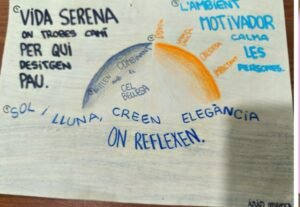 VIDA SERENA
ON TROBES CAMÍ
PER QUI
DESITGEN
PAU.
L'AMBIENT
MOTIVADOR
CALMA
LES
PERSONES.
CEL
BELLESA
SOL I LLUNA, CREEN ELEGÀNCIA
ON REFLEXEN.